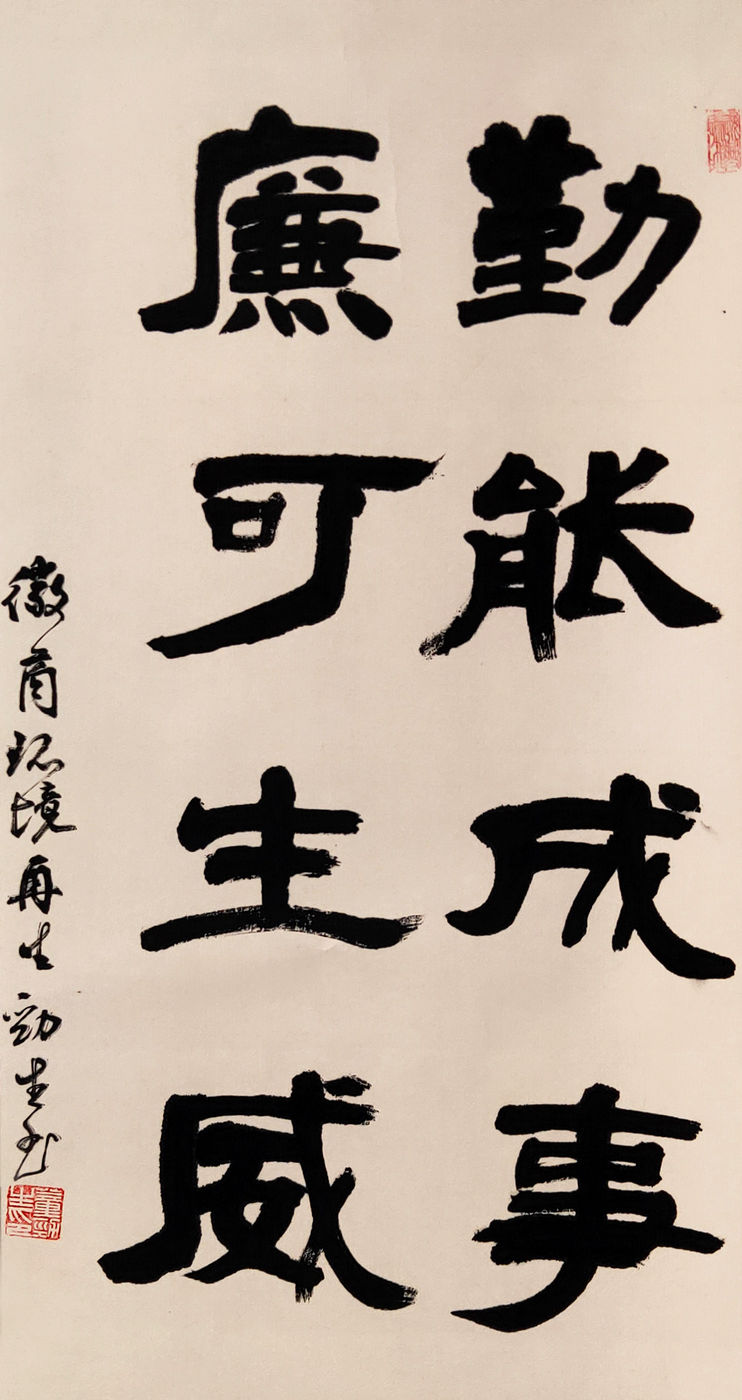 勤能成事
廉可生威
徽商环境再生 勁生书